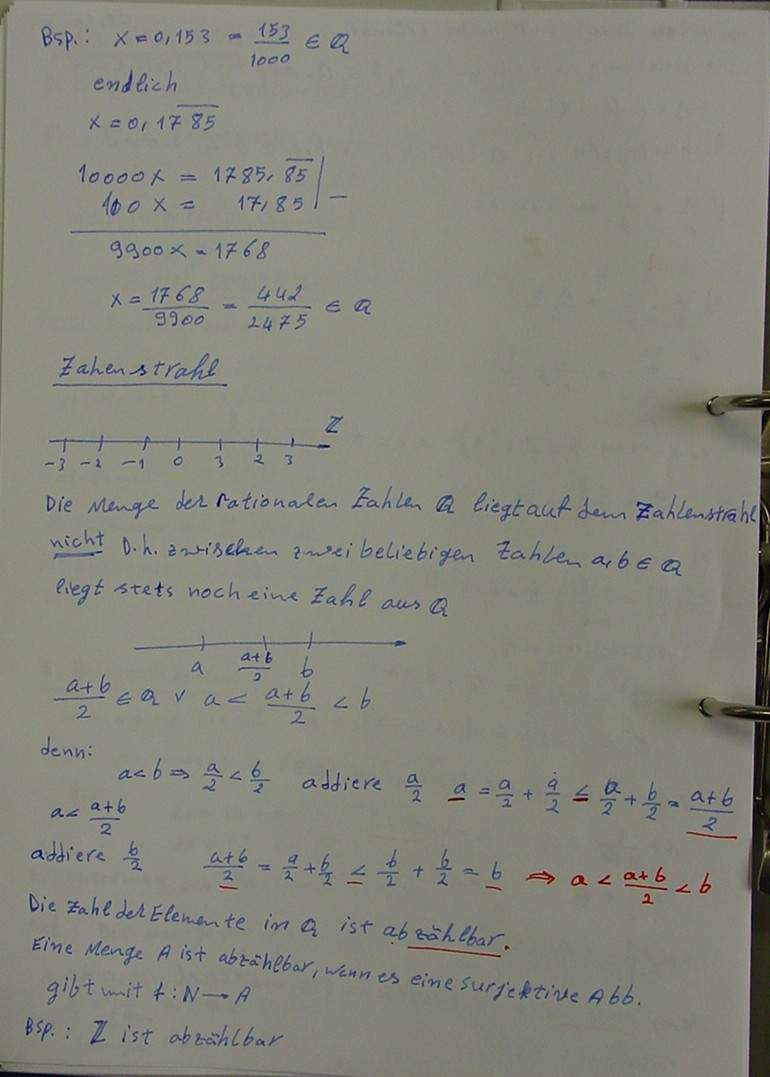 Bsp.: x = 0,153 = 153/1000 ∈ ℚ
endlich
x = 0,17\overline{85}
10000x = 1785,\overline{85} |
100x = 17,85 | −
9900x = 1768
x = 1768/9900 = 442/2475 ∈ ℚ
Zahenstrahl
ℤ
-3 -2 -1 0 3 2 3
Die Menge der rationalen Zahlen ℚ liegt auf dem Zahlenstrahl
nicht D.h. zwischen zwei beliebigen Zahlen a,b ∈ ℚ
liegt stets noch eine Zahl aus ℚ
a (a+b)/2 b
(a+b)/2 ∈ ℚ v a < (a+b)/2 < b
denn:
a<b ⇒ a/2 < b/2 addiere a/2 a = a/2 + a/2 ≤ a/2 + b/2 = (a+b)/2
a < (a+b)/2
addiere b/2 (a+b)/2 = a/2 + b/2 ≤ b/2 + b/2 = b ⇒ a < (a+b)/2 < b
Die Zahl der Elemente in ℚ ist abzählbar.
Eine Menge A ist abzählbar, wenn es eine surjektive Abb.
gibt mit f : N → A
Bsp.: ℤ ist abzählbar